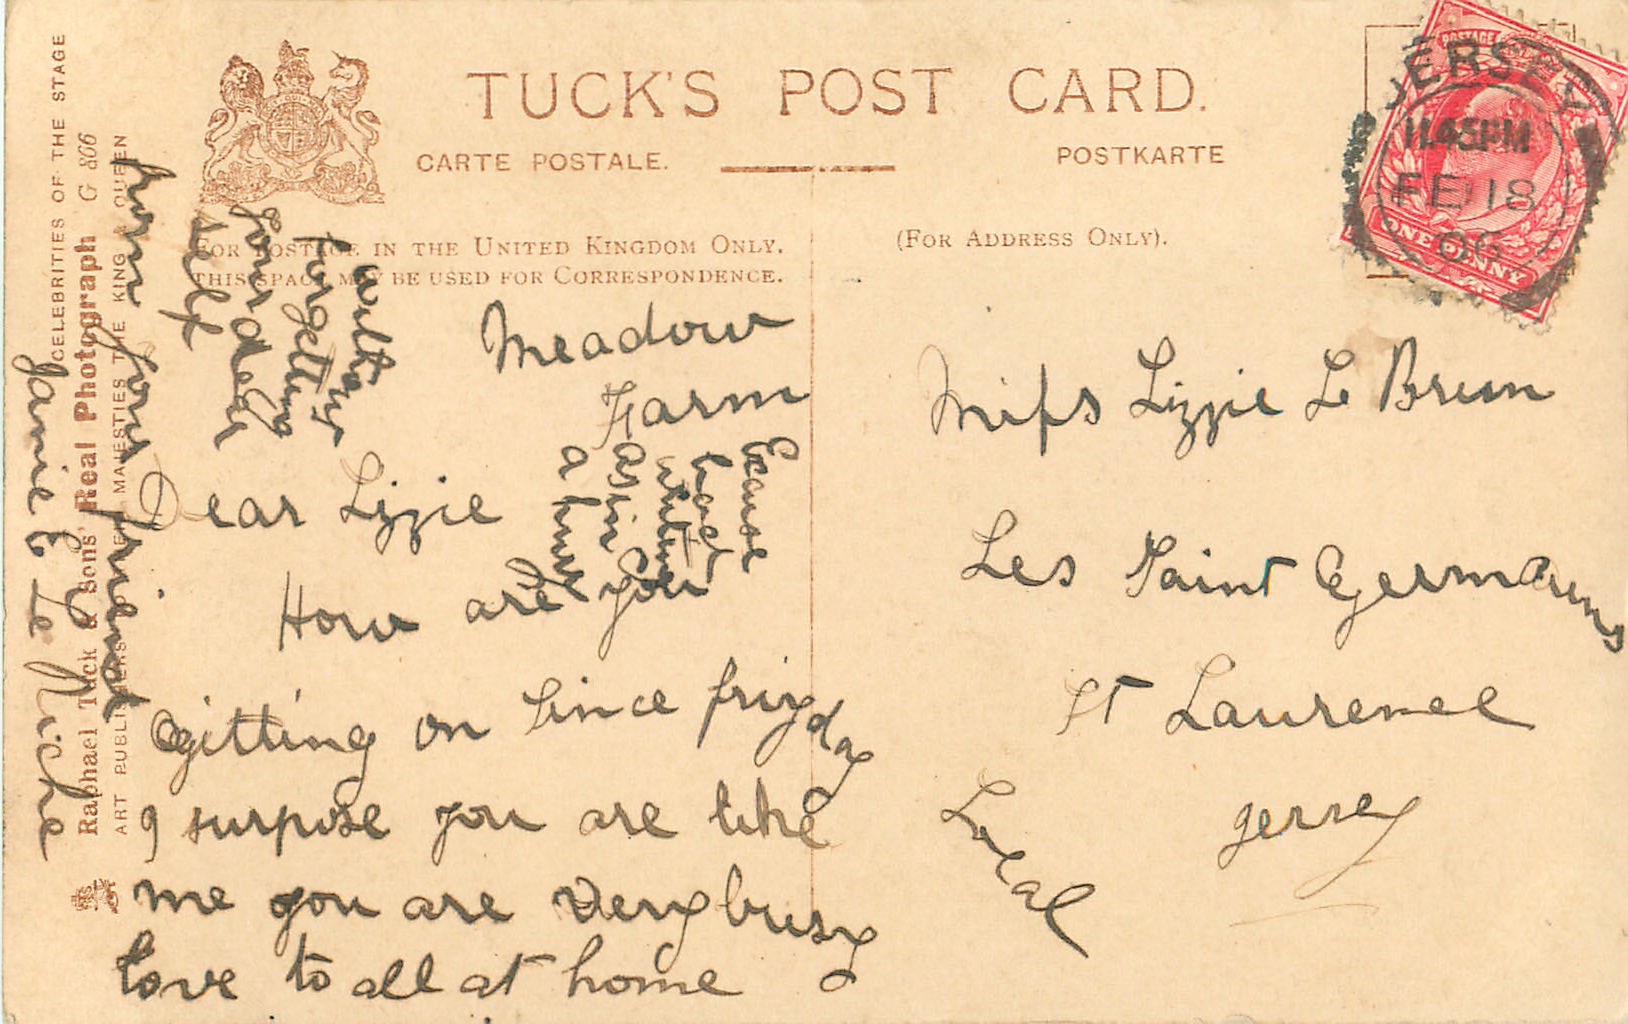 TUCK'S POST CARD.
CARTE POSTALE.
POSTKARTE
FOR POSTAGE IN THE UNITED KINGDOM ONLY.
THIS SPACE MAY BE USED FOR CORRESPONDENCE.
(FOR ADDRESS ONLY).
JERSEY
11.45PM
FE 18
06
POSTAGE
ONE PENNY
Meadow
Farm
Dear Lizzie
How are you
gitting on since friyday
I surpose you are like
me you are very busy
love to all at home
without
forgetting
your dear
self
from your friend
Jamie Le Riche
Excuse
bad
writing
as in
a hurry
Miss Lizzie Le Brun
Les Saint Germains
St Laurence
Jersey
Local
CELEBRITIES OF THE STAGE
Raphael Tuck & Sons' Real Photograph G 866
ART PUBLISHERS TO THEIR MAJESTIES THE KING & QUEEN